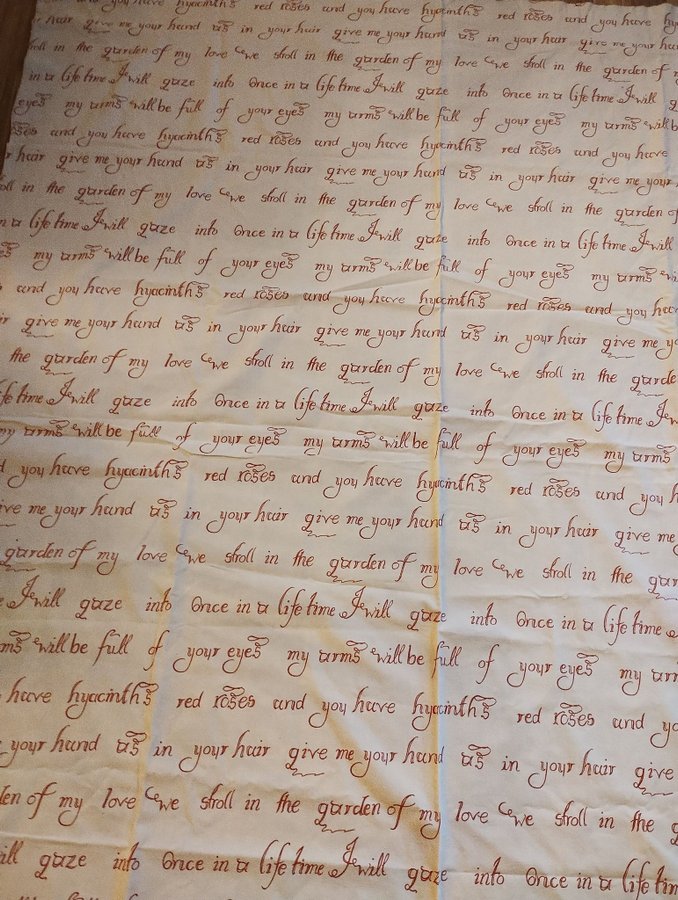 you have hyacinths red roses and you have hyacinths red roses and you have
hair give me your hand as in your hair give me your hand as in your hair give me your hair
stroll in the garden of my love we stroll in the garden of my love we stroll in the garden of
in a life time I will gaze into Once in a life time I will gaze into Once in a life time I will
eyes my arms will be full of your eyes my arms will be full of your eyes my arms will b
roses and you have hyacinths red roses and you have hyacinths red roses and you have
r hair give me your hand as in your hair give me your hand as in your hair give me your
oll in the garden of my love we stroll in the garden of my love we stroll in the garden of
n a life time I will gaze into Once in a life time I will gaze into Once in a life time I will
es my arms will be full of your eyes my arms will be full of your eyes my arms wi
s and you have hyacinths red roses and you have hyacinths red roses and you hav
ir give me your hand as in your hair give me your hand as in your hair give me y
the garden of my love we stroll in the garden of my love we stroll in the garde
ife time I will gaze into Once in a life time I will gaze into Once in a life time I w
my arms will be full of your eyes my arms will be full of your eyes my arms
d you have hyacinths red roses and you have hyacinths red roses and you h
ive me your hand as in your hair give me your hand as in your hair give me
garden of my love we stroll in the garden of my love we stroll in the gar
I will gaze into Once in a life time I will gaze into Once in a life time
ms will be full of your eyes my arms will be full of your eyes my arm
have hyacinths red roses and you have hyacinths red roses and yo
your hand as in your hair give me your hand as in your hair give
den of my love we stroll in the garden of my love we stroll in the g
ill gaze into Once in a life time I will gaze into Once in a life tim